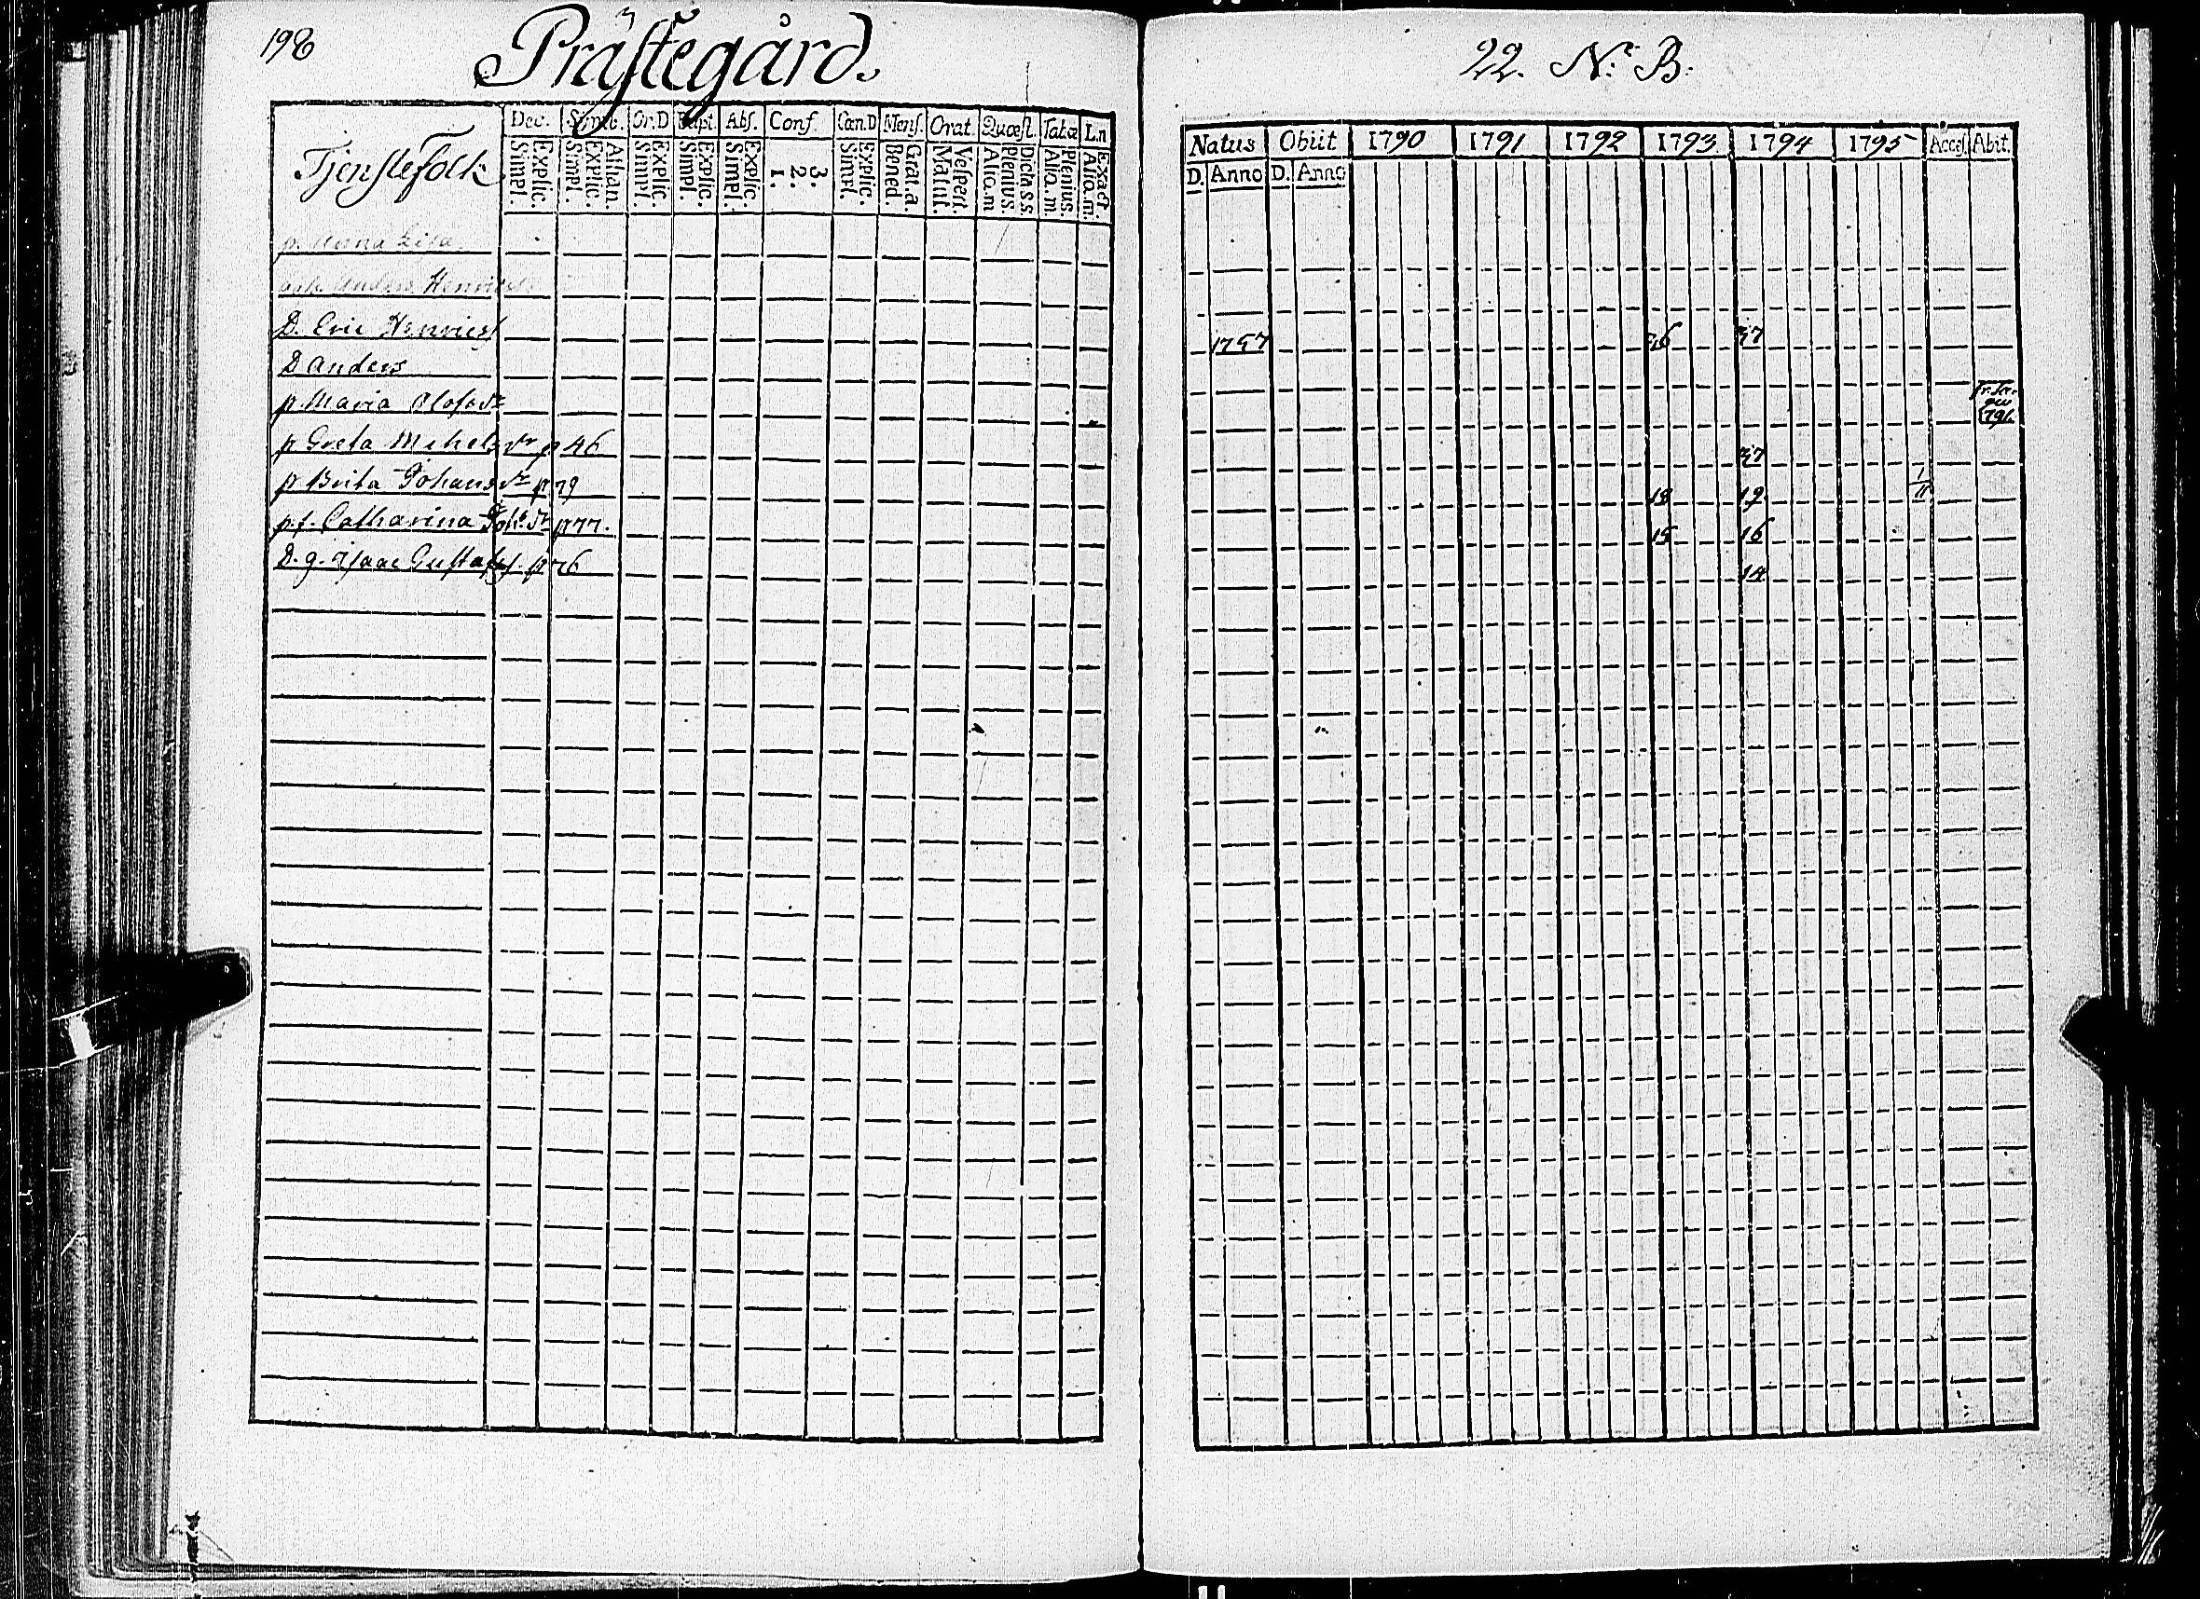 198
Prästegård.
22. N:r B.
Tjenstefolk
Dec. Simb. Or.D Bapt. Abs. Conf Can.D Mens. Orat. Quæst. Tabæ L.n
Simpl. Explic. Simpl. Explic. Athan. Simpl. Explic. Simpl. Explic. Simpl. Explic. 1. 2. 3. Simpl. Explic. Bened. Grat.a. Matut. Vespert. Alio.m Plenius. Dicta s.s. Alio.m. Plenius. Alio.m. Exact.
Natus Obiit 1790 1791 1792 1793 1794 1795 Access. Abit.
D. Anno D. Anno
p. Anna Lisa
Anders Henrics
D. Eric Henrics 1757
D Anders
p. Maria Olofsdr 791.
p Greta Michelsdr p 46
p Brita Johansdr p 79 18 19
p.f. Catharina Joh:dr p 77. 15 16
D. g. Isaac Gustafss. p 76 14